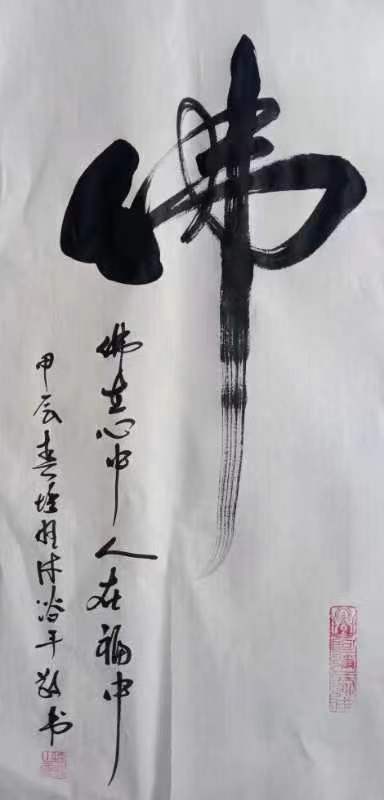 佛
佛在心中人在福中
甲辰春 沐浴 敬书